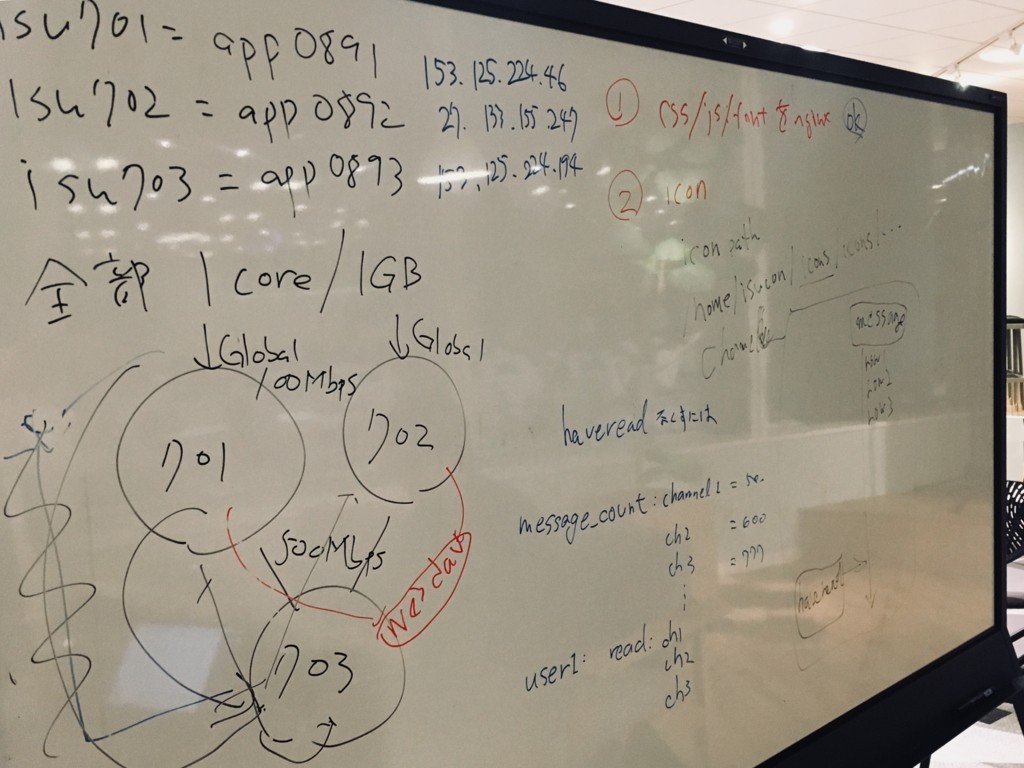 isu701 = app0891
isu702 = app0892
isu703 = app0893
153.125.224.46
27.133.155.247
153.125.224.194
① css/js/font を nginx ok
② icon
icon path
/home/isucon/icons/icons/...
全部 1core/1GB
↓Global
100Mbps
↓Global
701
702
500Mbps
703
message
row1
row2
row3
haveread
message_count: channel1 =
ch2 = 600
ch3 = 777
user1: read: ch1
ch2
ch3